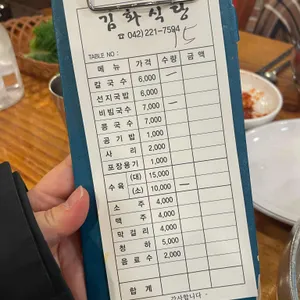 김화식당
☎ 042) 221-7594
TABLE NO : 15
메뉴 가격 수량 금액
칼국수 6,000 —
선지국밥 6,000
비빔국수 7,000 —
콩국수 7,000
공기밥 1,000
사리 2,000
포장용기 1,000
수육 (대) 15,000
(소) 10,000 —
소주 4,000
맥주 4,000
막걸리 4,000
청하 5,000
음료수 2,000
합계
- 감사합니다 -